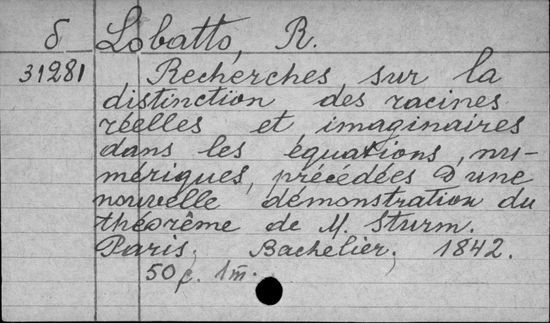 δ Lobatto, R.
31281 Recherches sur la
distinction des racines
réelles et imaginaires
dans les équations nu-
mériques, précédées d'une
nouvelle démonstration du
théorême de M. Sturm.
Paris, Bachelier, 1842.
50 p. 1 m.